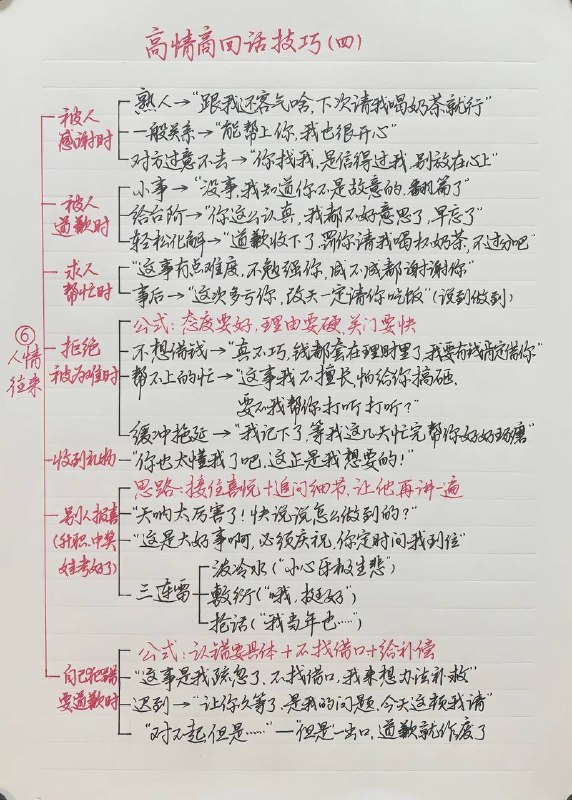 高情商回话技巧(四)
⑥人情往来
被人感谢时
熟人→“跟我还客气啥,下次请我喝奶茶就行”
一般关系→“能帮上你,我也很开心”
对方过意不去→“你找我,是信得过我,别放在心上”
被人道歉时
小事→“没事,我知道你不是故意的,翻篇了”
给台阶→“你这么认真,我都不好意思了,早忘了”
轻松化解→“道歉收下了,罚你请我喝杯奶茶,不过分吧”
求人帮忙时
“这事有点难度,不勉强你,成不成都谢谢你”
事后→“这次多亏你,改天一定请你吃饭”(说到做到)
拒绝被为难时
公式:态度要好,理由要硬,关门要快
不想借钱→“真不巧,钱都套在理财里了,我要有钱肯定借你”
帮不上的忙→“这事我不擅长,怕给你搞砸.
要不我帮你打听打听?”
缓冲拖延→“我记下了,等我这几天忙完帮你好好琢磨”
收到礼物
“你也太懂我了吧,这正是我想要的!”
别人报喜(升职.中奖娃考好了)
思路:接住喜悦+追问细节,让他再讲一遍
“天呐太厉害了!快说说怎么做到的?”
“这是大好事啊,必须庆祝,你定时间我到位”
三连雷
泼冷水(“小心乐极生悲”)
敷衍(“哦,挺好”)
抢话(“我当年也……”)
自己犯错要道歉时
公式:认错要具体+不找借口+给补偿
“这事是我疏忽了,不找借口,我来想办法补救”
迟到→“让你久等了,是我的问题,今天这顿我请”
“对不起,但是……”—“但是”一出口,道歉就作废了